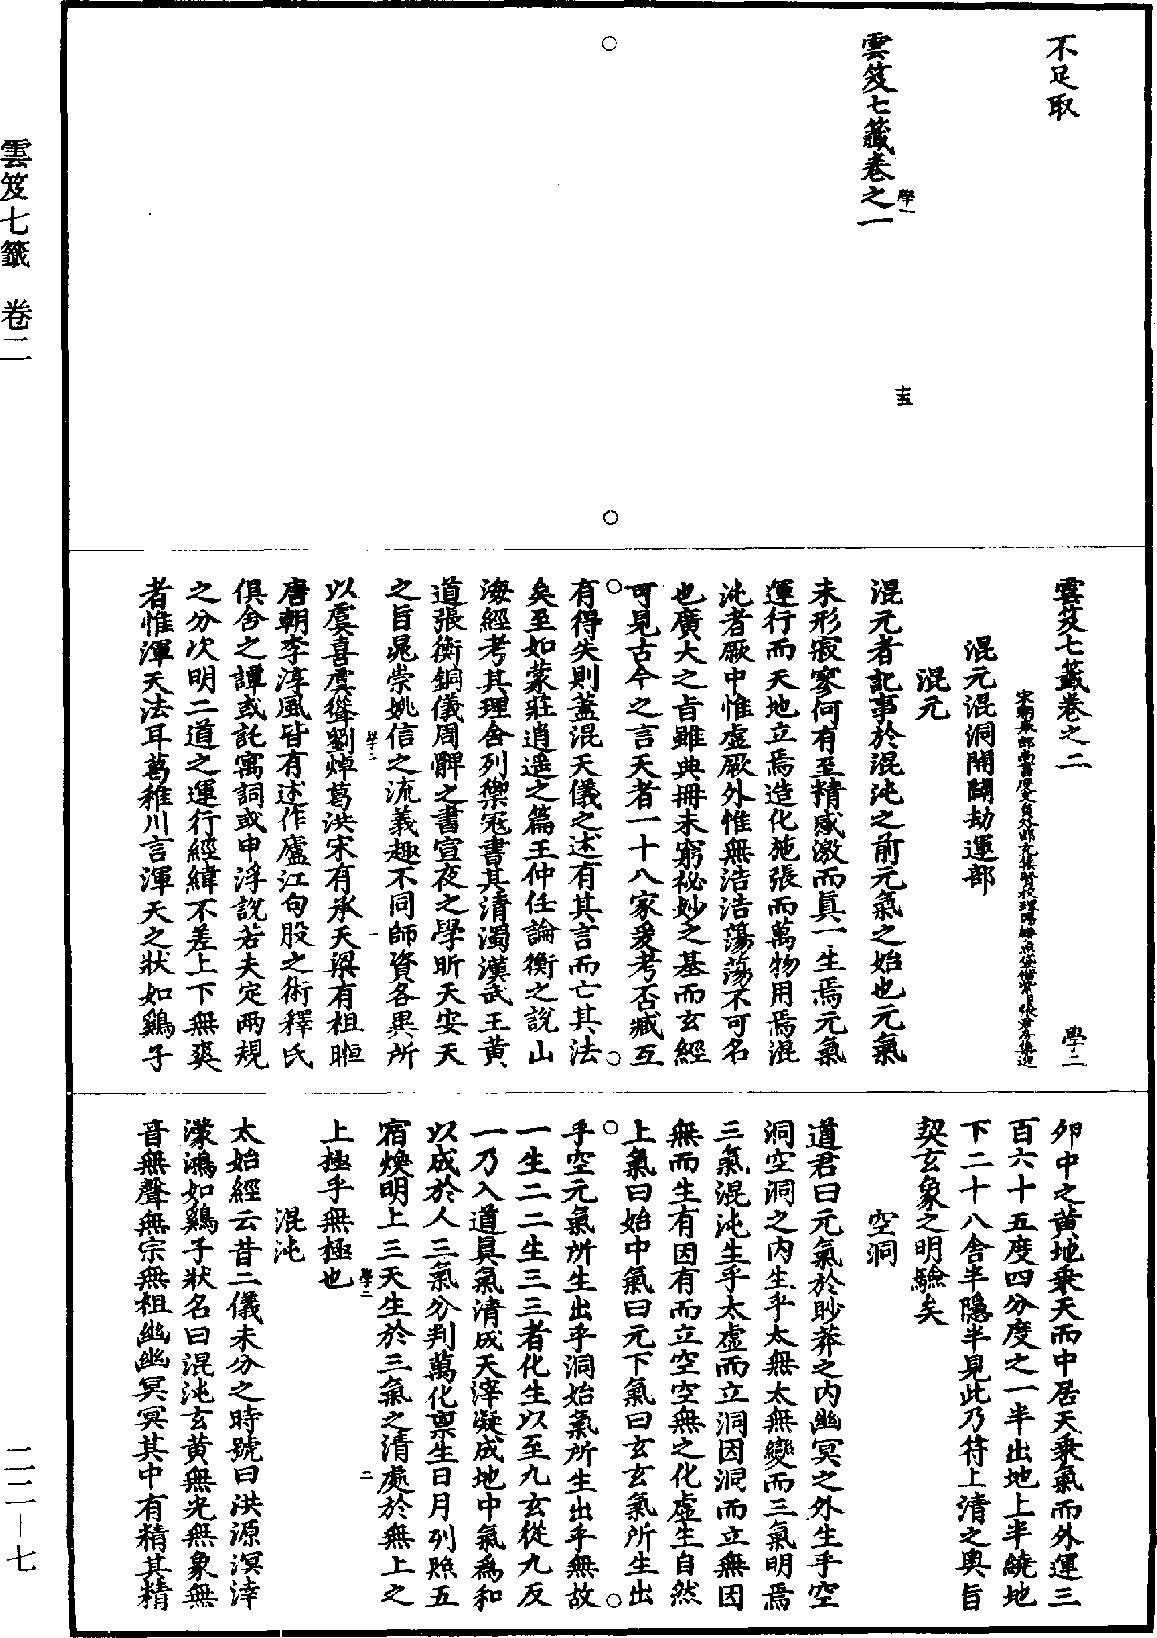 不足取
雲笈七籤卷之一
學一
十五
雲笈七籤卷之二
學二
混元混洞開闢劫運部
混元
混元者記事於混沌之前元氣之始也元氣
未形寂寥何有至精感激而真一生焉元氣
運行而天地立焉造化施張而萬物用焉混
沌者厥中惟虛厥外惟無浩浩蕩蕩不可名
也廣大之旨雖典冊未窮祕妙之基而玄經
可見古今之言天者一十八家爰考否臧互
有得失則蓋混天儀之述有其言而亡其法
矣至如蒙莊逍遙之篇王仲任論衡之說山
海經考其理舍列禦寇書其清濁漢武王黃
道張衡銅儀周髀之書宣夜之學昕天安天
之旨晁崇姚信之流義趣不同師資各異所
學二
一
以虞喜虞聳劉焯葛洪宋有承天梁有祖暅
唐朝李淳風皆有述作廬江句股之術釋氏
俱舍之譚或託寓詞或申浮說若夫定兩規
之分次明二道之運行經緯不差上下無爽
者惟渾天法耳葛稚川言渾天之狀如雞子
卵中之黃地乘天而中居天乘氣而外運三
百六十五度四分度之一半出地上半繞地
下二十八舍半隱半見此乃符上清之奧旨
契玄象之明驗矣
空洞
道君曰元氣於眇莽之內幽冥之外生乎空
洞空洞之內生乎太無太無變而三氣明焉
三氣混沌生乎太虛而立洞因洞而立無因
無而生有因有而立空空無之化虛生自然
上氣曰始中氣曰元下氣曰玄玄氣所生出
乎空元氣所生出乎洞始氣所生出乎無故
一生二二生三三者化生以至九玄從九反
一乃入道真氣清成天滓凝成地中氣為和
以成於人三氣分判萬化稟生日月列照五
宿煥明上三天生於三氣之清處於無上之
學二
二
上極乎無極也
混沌
太始經云昔二儀未分之時號曰洪源溟涬
濛鴻如雞子狀名曰混沌玄黃無光無象無
音無聲無宗無祖幽幽冥冥其中有精其精
雲笈七籤　卷二
二二－七